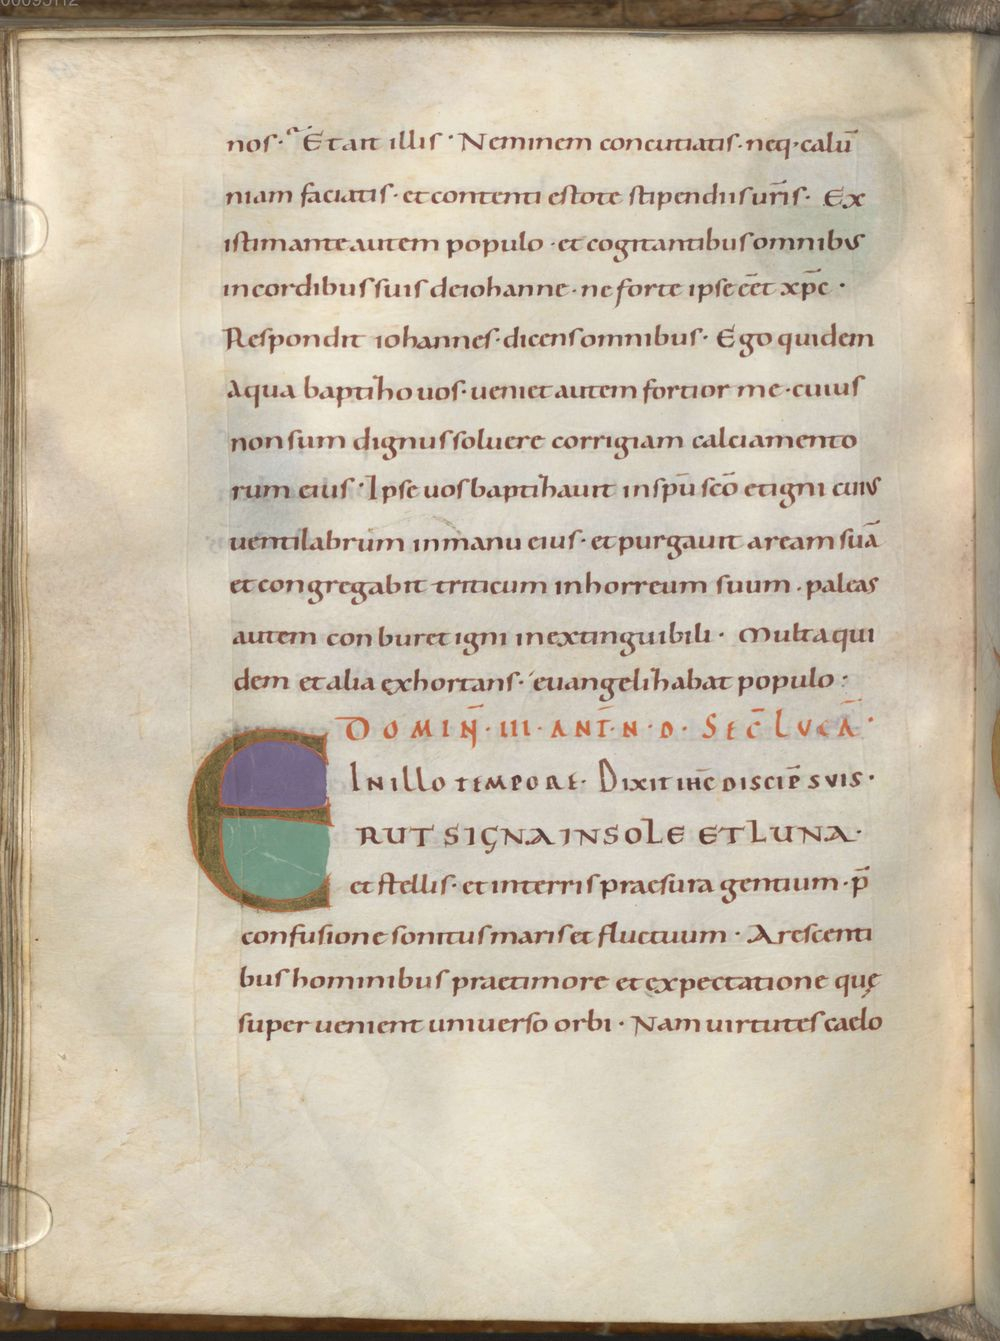 nos· Et ait illis· Neminem concutiatis· neq· calū
niam faciatis· et contenti estote stipendiis ur̄is· Ex
istimante autem populo· et cogitantibus omnibus
in cordibus suis de iohanne· ne forte ipse eēt xp̄c·
Respondit iohannes· dicens omnibus· Ego quidem
aqua baptizo uos· ueniet autem fortior me· cuius
non sum dignus soluere corrigiam calciamento
rum eius· Ipse uos baptizauit in sp̄u sc̄o et igni cuius
uentilabrum in manu eius· et purgauit aream suā
et congregabit triticum in horreum suum· paleas
autem conburet igni inextinguibili· Multa qui
dem et alia exhortans· euangelizabat populo:
DOMIN̄· III· ANT̄· N· D· SEC̄ LUCĀ·
IN ILLO TEMPORE· DIXIT IHC̄ DISCIP̄ SUIS·
ERUT SIGNA IN SOLE ET LUNA·
et stellis· et in terris praesura gentium· p̄
confusione sonitus maris et fluctuum· Arescenti
bus hominibus prae timore et expectatione quę
superuenient uniuerso orbi· Nam uirtutes caelo